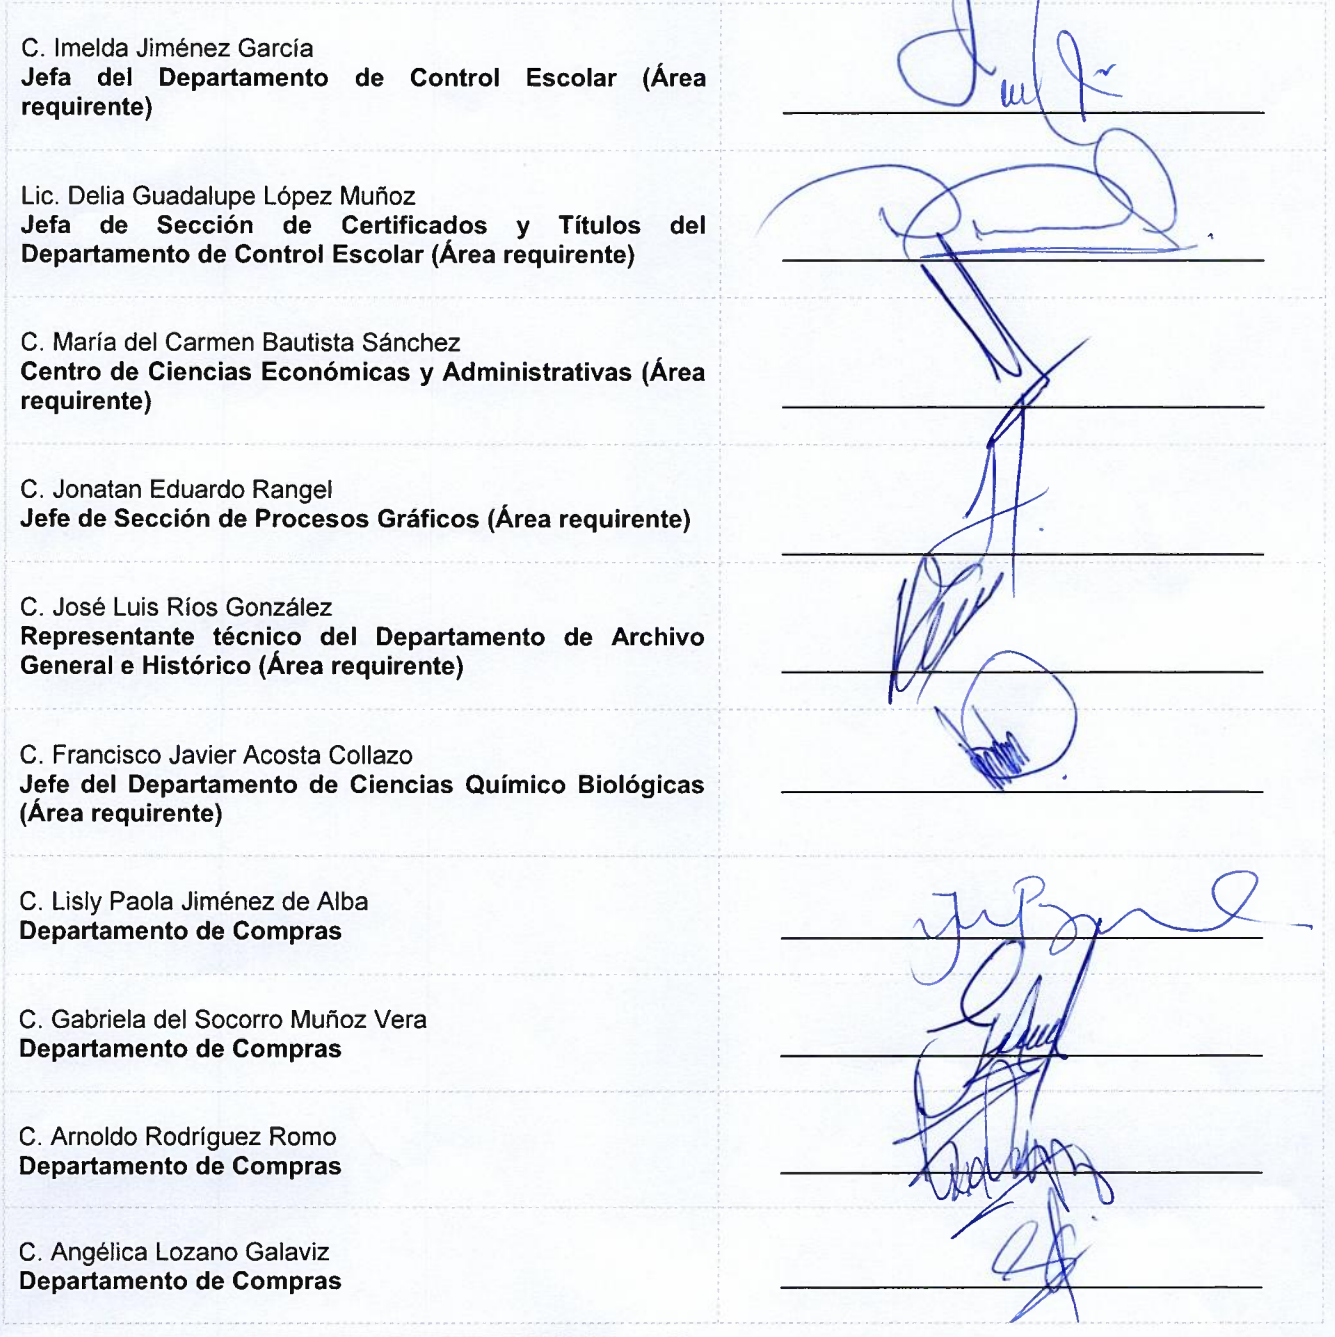 C. Imelda Jiménez García
Jefa del Departamento de Control Escolar (Área
requirente)
Lic. Delia Guadalupe López Muñoz
Jefa de Sección de Certificados y Títulos del
Departamento de Control Escolar (Área requirente)
C. María del Carmen Bautista Sánchez
Centro de Ciencias Económicas y Administrativas (Área
requirente)
C. Jonatan Eduardo Rangel
Jefe de Sección de Procesos Gráficos (Área requirente)
C. José Luis Ríos González
Representante técnico del Departamento de Archivo
General e Histórico (Área requirente)
C. Francisco Javier Acosta Collazo
Jefe del Departamento de Ciencias Químico Biológicas
(Área requirente)
C. Lisly Paola Jiménez de Alba
Departamento de Compras
C. Gabriela del Socorro Muñoz Vera
Departamento de Compras
C. Arnoldo Rodríguez Romo
Departamento de Compras
C. Angélica Lozano Galaviz
Departamento de Compras